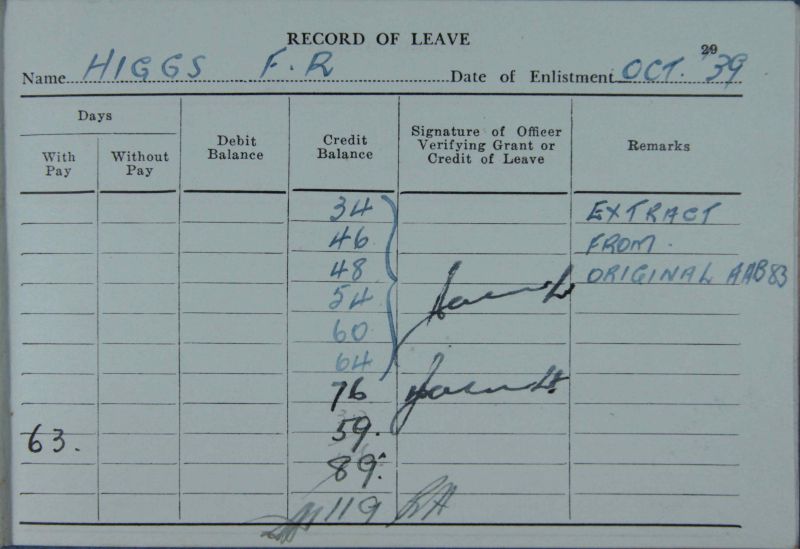 RECORD OF LEAVE
29
Name HIGGS F.R Date of Enlistment OCT. '39
Days
With Pay
Without Pay
Debit Balance
Credit Balance
Signature of Officer Verifying Grant or Credit of Leave
Remarks
34 EXTRACT
46 FROM.
48 ORIGINAL AAB83
54
60
64
76
63. 59.
89.
119